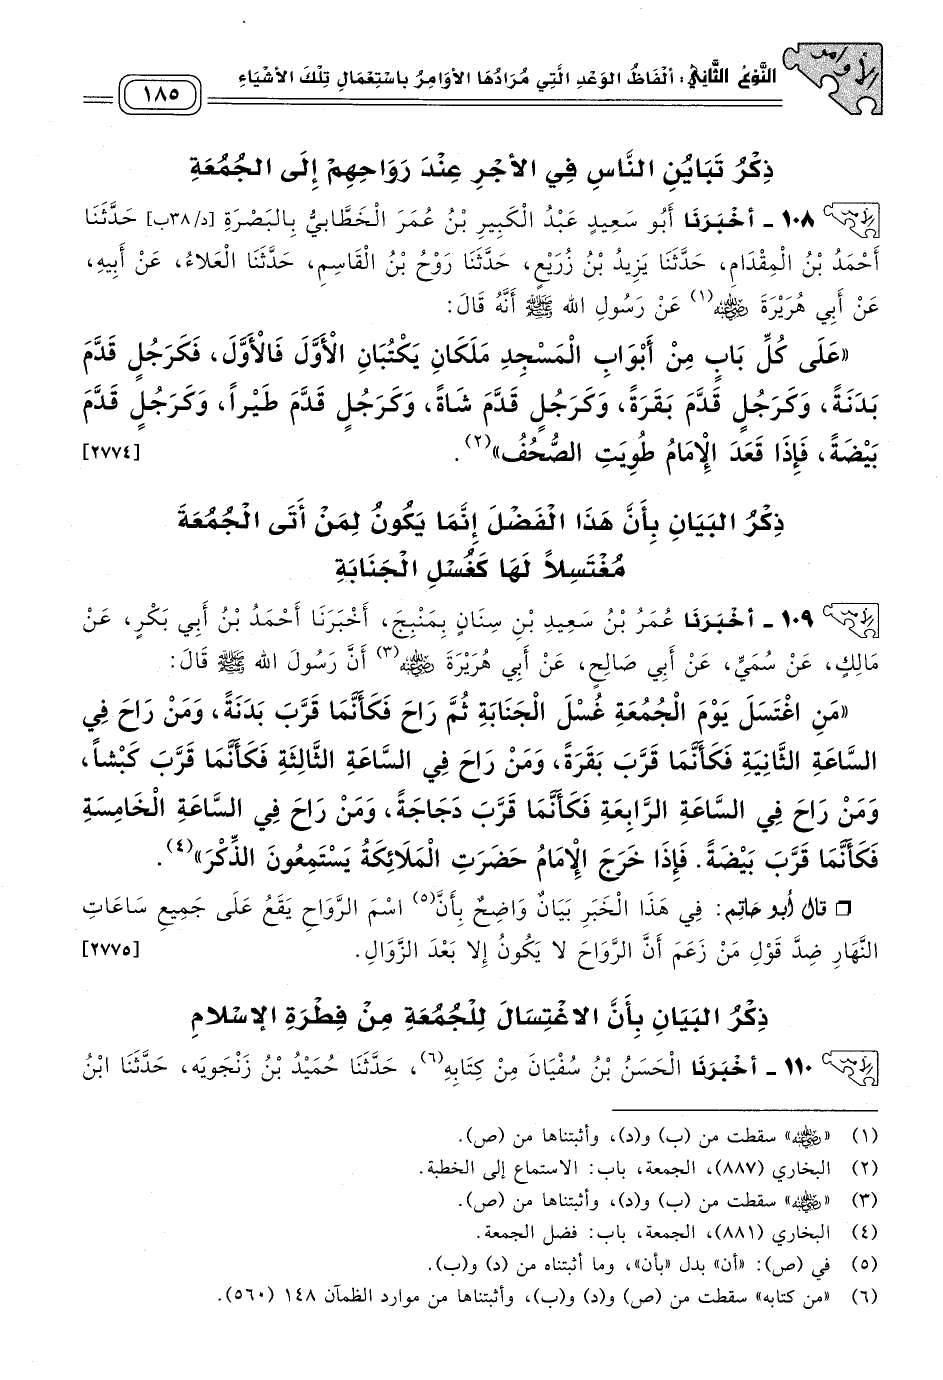 الأوامر
النَّوْعُ الثَّانِي: ألْفَاظُ الوَعْدِ الَّتِي مُرَادُهَا الأوَامِرُ بِاسْتِعْمَالِ تِلْكَ الأشْيَاءِ
١٨٥
ذِكْرُ تَبَايُنِ النَّاسِ فِي الأجْرِ عِنْدَ رَوَاحِهِمْ إِلَى الجُمُعَةِ
١٠٨ - أخْبَرَنَا أَبُو سَعِيدٍ عَبْدُ الْكَبِيرِ بْنُ عُمَرَ الْخَطَّابِيُّ بِالبَصْرَةِ [د/٣٨ب] حَدَّثَنَا
أَحْمَدُ بْنُ الْمِقْدَامِ، حَدَّثَنَا يَزِيدُ بْنُ زُرَيْعٍ، حَدَّثَنَا رَوْحُ بْنُ القَاسِمِ، حَدَّثَنَا العَلاءُ، عَنْ أَبِيهِ،
عَنْ أَبِي هُرَيْرَةَ رضي الله عنه(١) عَنْ رَسُولِ الله ﷺ أَنَّهُ قَالَ:
«عَلَى كُلِّ بَابٍ مِنْ أَبْوَابِ الْمَسْجِدِ مَلَكَانِ يَكْتُبَانِ الْأَوَّلَ فَالْأَوَّلَ، فَكَرَجُلٍ قَدَّمَ
بَدَنَةً، وَكَرَجُلٍ قَدَّمَ بَقَرَةً، وَكَرَجُلٍ قَدَّمَ شَاةً، وَكَرَجُلٍ قَدَّمَ طَيْراً، وَكَرَجُلٍ قَدَّمَ
بَيْضَةً، فَإِذَا قَعَدَ الْإِمَامُ طُوِيَتِ الصُّحُفُ»(٢). [٢٧٧٤]
ذِكْرُ البَيَانِ بِأَنَّ هَذَا الْفَضْلَ إِنَّمَا يَكُونُ لِمَنْ أَتَى الْجُمُعَةَ
مُغْتَسِلاً لَهَا كَغُسْلِ الْجَنَابَةِ
١٠٩ - أخْبَرَنَا عُمَرُ بْنُ سَعِيدِ بْنِ سِنَانٍ بِمَنْبِجَ، أَخْبَرَنَا أَحْمَدُ بْنُ أَبِي بَكْرٍ، عَنْ
مَالِكٍ، عَنْ سُمَيٍّ، عَنْ أَبِي صَالِحٍ، عَنْ أَبِي هُرَيْرَةَ رضي الله عنه(٣) أَنَّ رَسُولَ الله ﷺ قَالَ:
«مَنِ اغْتَسَلَ يَوْمَ الْجُمُعَةِ غُسْلَ الْجَنَابَةِ ثُمَّ رَاحَ فَكَأَنَّمَا قَرَّبَ بَدَنَةً، وَمَنْ رَاحَ فِي
السَّاعَةِ الثَّانِيَةِ فَكَأَنَّمَا قَرَّبَ بَقَرَةً، وَمَنْ رَاحَ فِي السَّاعَةِ الثَّالِثَةِ فَكَأَنَّمَا قَرَّبَ كَبْشاً،
وَمَنْ رَاحَ فِي السَّاعَةِ الرَّابِعَةِ فَكَأَنَّمَا قَرَّبَ دَجَاجَةً، وَمَنْ رَاحَ فِي السَّاعَةِ الْخَامِسَةِ
فَكَأَنَّمَا قَرَّبَ بَيْضَةً. فَإِذَا خَرَجَ الْإِمَامُ حَضَرَتِ الْمَلَائِكَةُ يَسْتَمِعُونَ الذِّكْرَ»(٤).
□ قال أبو حاتم: فِي هَذَا الْخَبَرِ بَيَانٌ وَاضِحٌ بِأَنَّ(٥) اسْمَ الرَّوَاحِ يَقَعُ عَلَى جَمِيعِ سَاعَاتِ
النَّهَارِ ضِدَّ قَوْلِ مَنْ زَعَمَ أَنَّ الرَّوَاحَ لا يَكُونُ إلا بَعْدَ الزَّوَالِ. [٢٧٧٥]
ذِكْرُ البَيَانِ بِأَنَّ الاغْتِسَالَ لِلْجُمُعَةِ مِنْ فِطْرَةِ الإسْلامِ
١١٠ - أخْبَرَنَا الْحَسَنُ بْنُ سُفْيَانَ مِنْ كِتَابِهِ(٦)، حَدَّثَنَا حُمَيْدُ بْنُ زَنْجَويَه، حَدَّثَنَا ابْنُ
(١) «رضي الله عنه» سقطت من (ب) و(د)، وأثبتناها من (ص).
(٢) البخاري (٨٨٧)، الجمعة، باب: الاستماع إلى الخطبة.
(٣) «رضي الله عنه» سقطت من (ب) و(د)، وأثبتناها من (ص).
(٤) البخاري (٨٨١)، الجمعة، باب: فضل الجمعة.
(٥) في (ص): «أن» بدل «بأن»، وما أثبتناه من (د) و(ب).
(٦) «من كتابه» سقطت من (ص) و(د) و(ب)، وأثبتناها من موارد الظمآن ١٤٨ (٥٦٠).